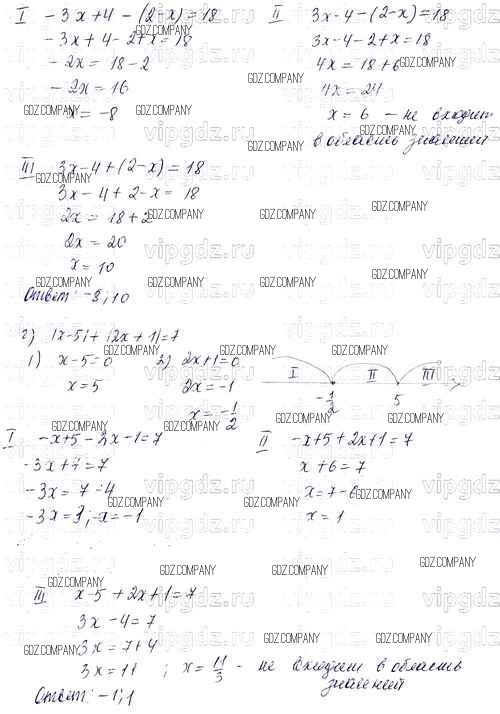 I -3x+4-(2-x)=18
-3x+4-2+x=18
-2x=18-2
-2x=16
x=-8
II 3x-4-(2-x)=18
3x-4-2+x=18
4x=18+6
4x=24
x=6 - не входит
в область значений
III 3x-4+(2-x)=18
3x-4+2-x=18
2x=18+2
2x=20
x=10
Ответ: -8; 10
г) |x-5|+|2x+1|=7
1) x-5=0
x=5
2) 2x+1=0
2x=-1
x=-1/2
I II III
-1/2 5 x
I -x+5-2x-1=7
-3x+4=7
-3x=7-4
-3x=3; x=-1
II -x+5+2x+1=7
x+6=7
x=7-6
x=1
III x-5+2x+1=7
3x-4=7
3x=7+4
3x=11; x=11/3 - не входит в область
значений
Ответ: -1; 1
GDZ.COMPANY
vipgdz.ru